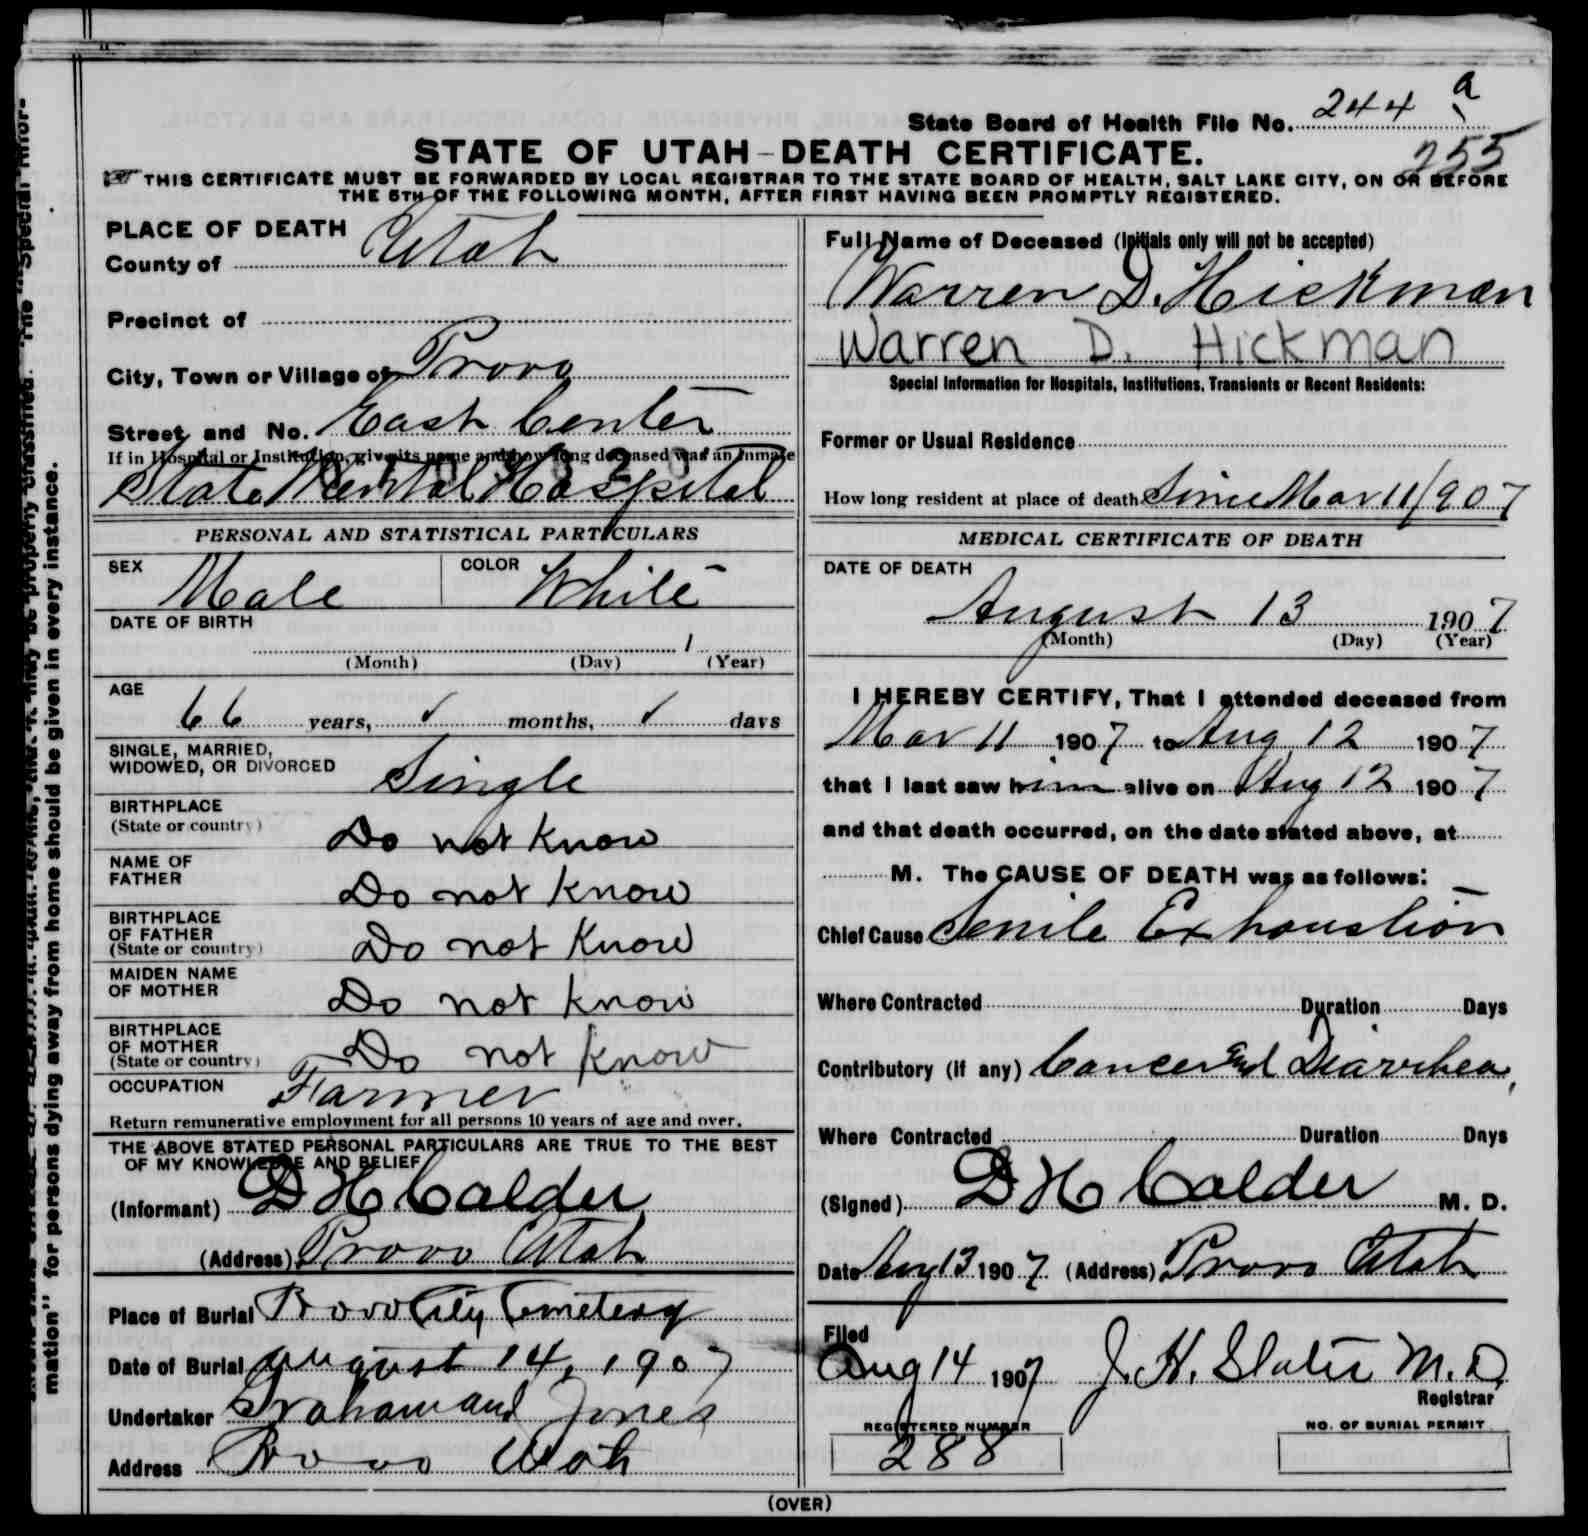 State Board of Health File No. 244 a
255
STATE OF UTAH-DEATH CERTIFICATE.
THIS CERTIFICATE MUST BE FORWARDED BY LOCAL REGISTRAR TO THE STATE BOARD OF HEALTH, SALT LAKE CITY, ON OR BEFORE
THE 5TH OF THE FOLLOWING MONTH, AFTER FIRST HAVING BEEN PROMPTLY REGISTERED.
PLACE OF DEATH
County of Utah
Precinct of
City, Town or Village of Provo
Street and No. East Center
If in Hospital or Institution, give its name and how long deceased was an inmate
State Mental Hospital
PERSONAL AND STATISTICAL PARTICULARS
SEX Male COLOR White
DATE OF BIRTH
1
(Month) (Day) (Year)
AGE
66 years, ✓ months, ✓ days
SINGLE, MARRIED,
WIDOWED, OR DIVORCED Single
BIRTHPLACE
(State or country) Do not know
NAME OF
FATHER Do not know
BIRTHPLACE
OF FATHER
(State or country) Do not know
MAIDEN NAME
OF MOTHER Do not know
BIRTHPLACE
OF MOTHER
(State or country) Do not know
OCCUPATION Farmer
Return remunerative employment for all persons 10 years of age and over.
THE ABOVE STATED PERSONAL PARTICULARS ARE TRUE TO THE BEST
OF MY KNOWLEDGE AND BELIEF
(Informant) D H Calder
(Address) Provo Utah
Place of Burial Provo City Cemetery
Date of Burial August 14, 1907
Undertaker Graham and Jones
Address Provo Utah
Full Name of Deceased (Initials only will not be accepted)
Warren D. Hickman
Warren D. Hickman
Special Information for Hospitals, Institutions, Transients or Recent Residents:
Former or Usual Residence
How long resident at place of death Since Mar 11/907
MEDICAL CERTIFICATE OF DEATH
DATE OF DEATH
August 13 1907
(Month) (Day) (Year)
I HEREBY CERTIFY, That I attended deceased from
Mar 11 1907 to Aug 12 1907
that I last saw him alive on Aug 12 1907
and that death occurred, on the date stated above, at
M. The CAUSE OF DEATH was as follows:
Chief Cause Senile Exhaustion
Where Contracted Duration Days
Contributory (if any) Cancer and Diarrhea,
Where Contracted Duration Days
(Signed) D H Calder M. D.
Date Aug 13 1907 (Address) Provo Utah
Filed
Aug 14 1907 J. H. Slater M. D.
Registrar
REGISTERED NUMBER
288
NO. OF BURIAL PERMIT
(OVER)
mation" for persons dying away from home should be given in every instance.